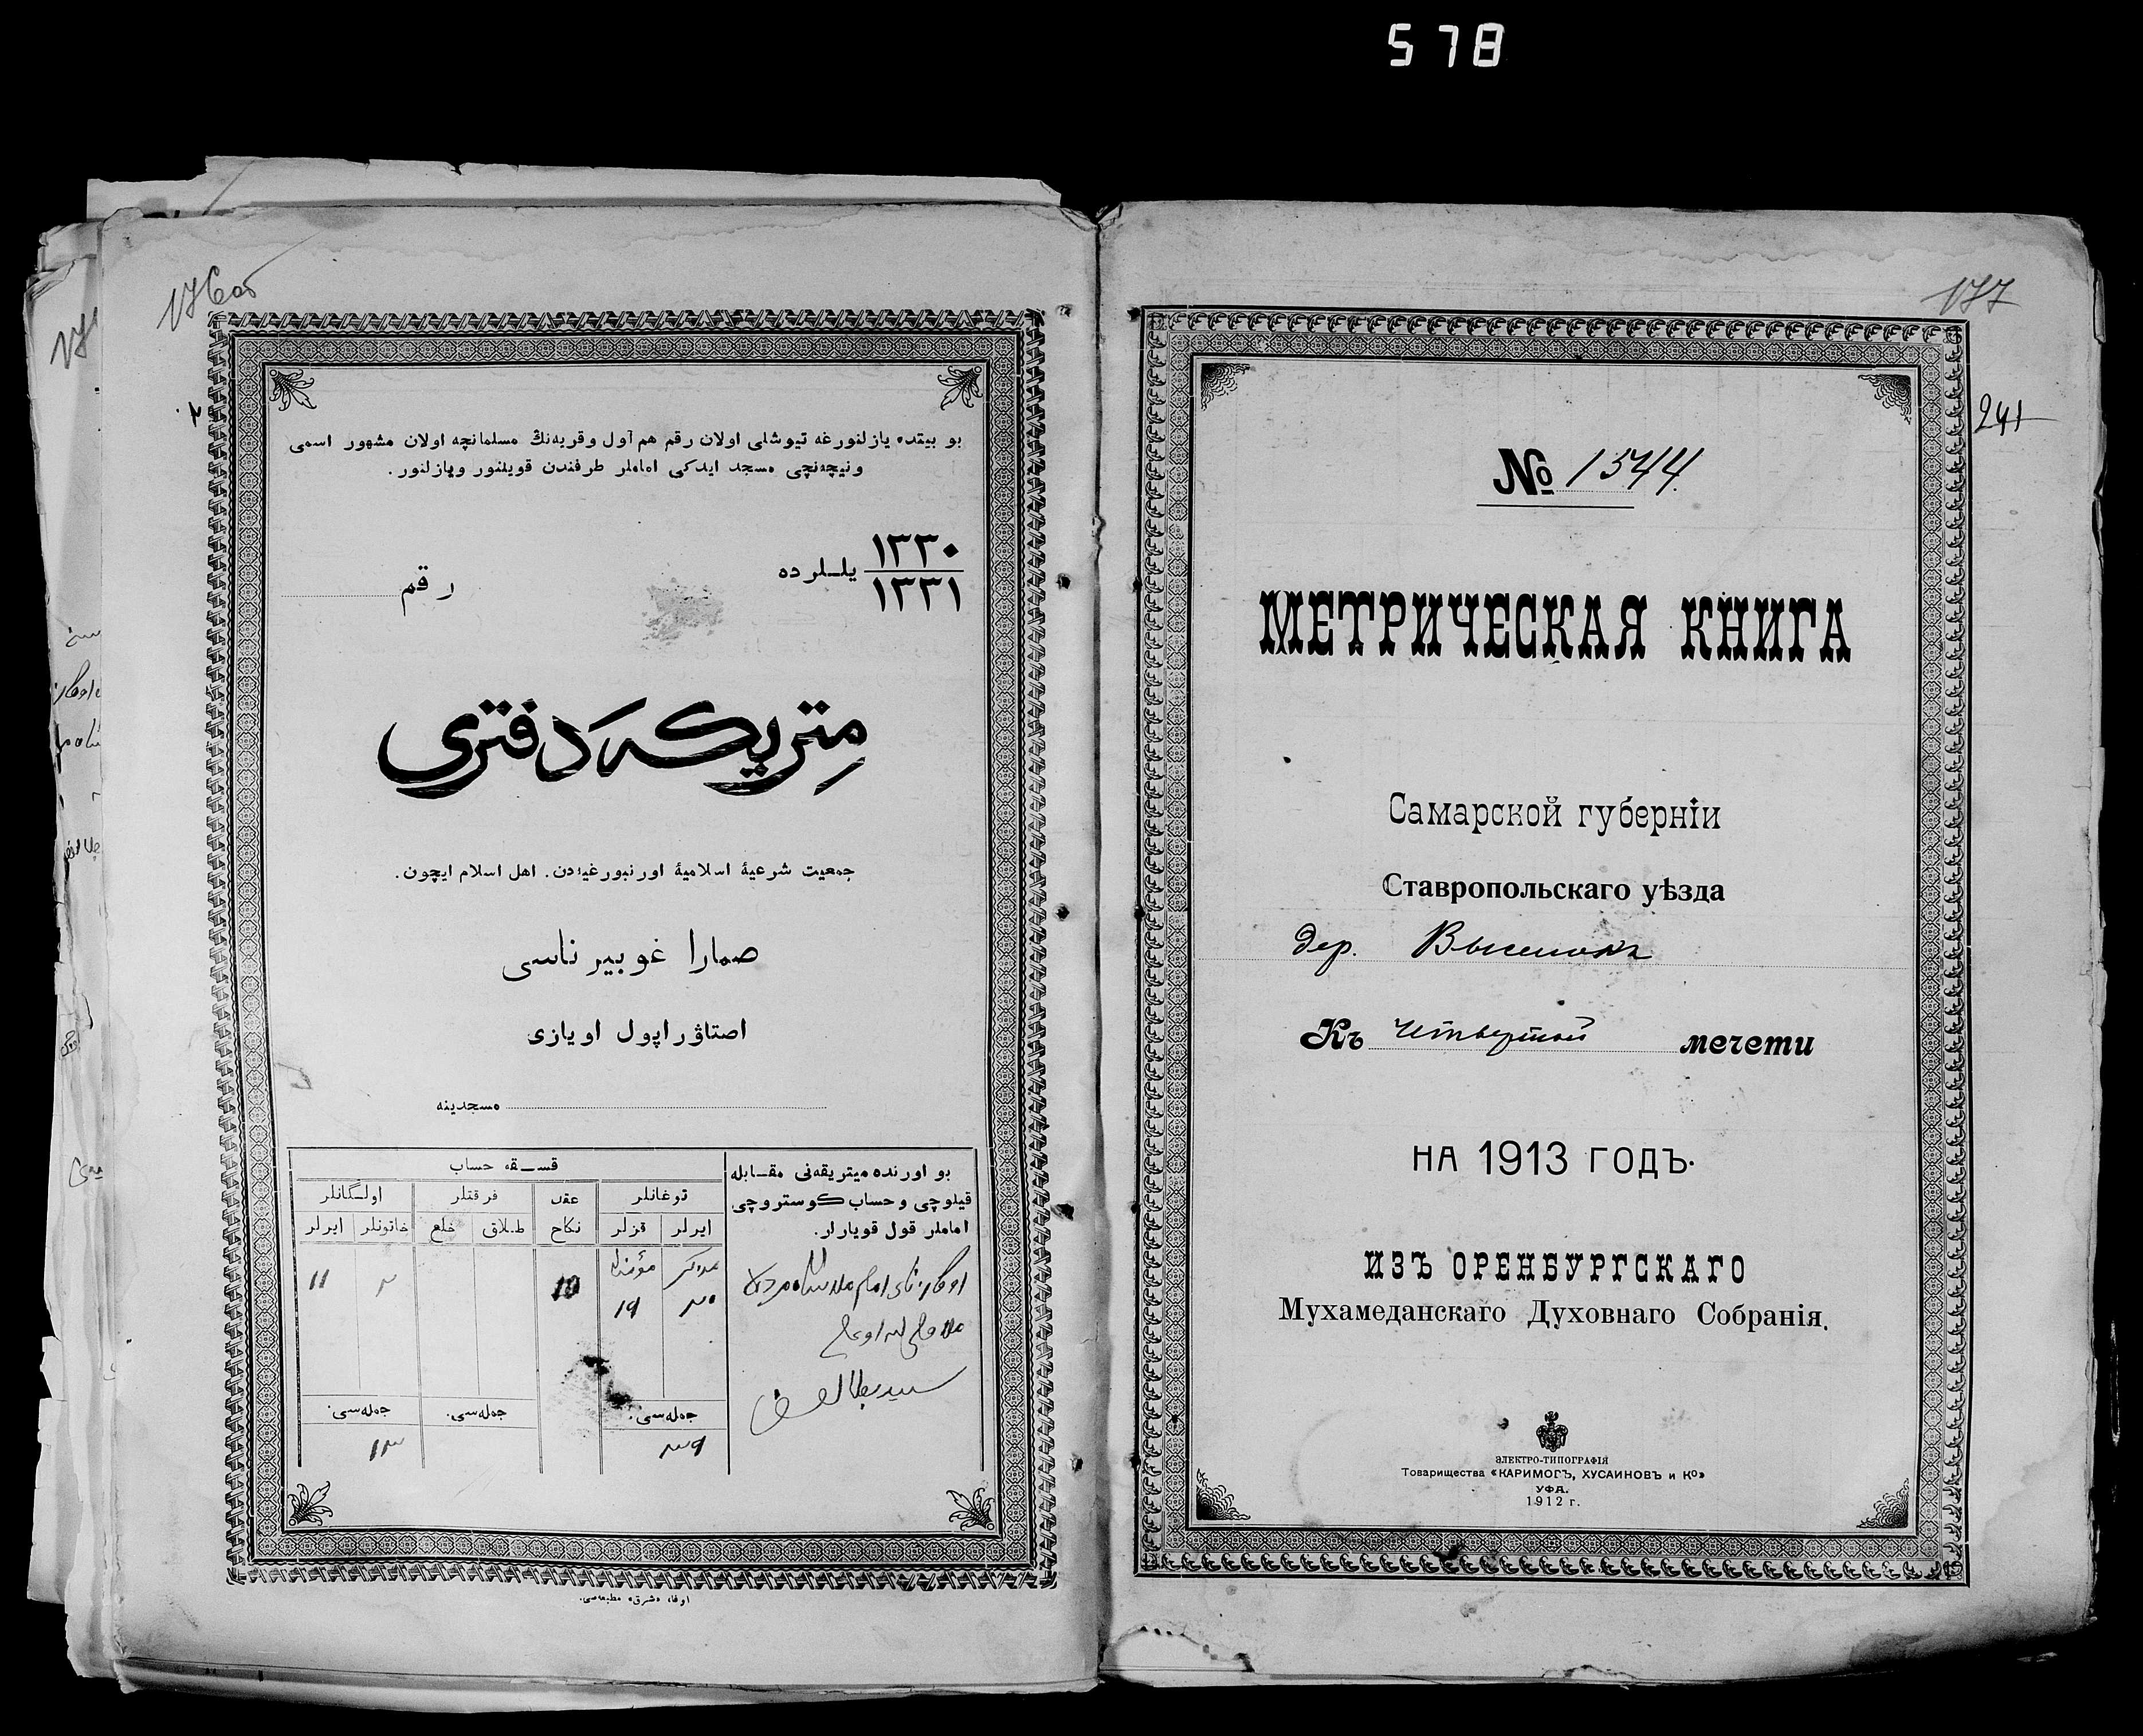 578
176 об
بو بيتده يازلنورغه تيوشلى اولان رقم هم آول و قريه‌نڭ مسلمانچه اولان مشهور اسمى
ونيچه‌نچى مسجد ايدكى اماملر طرفندن قويلنور ويازلنور.
١٣٣٠
١٣٣١
يللرده
رقم
متريكه دفترى
جمعيت شرعيۀ اسلاميۀ اورنبورغيه‌دن. اهل اسلام ايچون.
صمارا غوبيرناسى
اصتاۋراپول اويازى
مسجدينه
بو اورنده ميتريقه‌نى مقابله
قيلوچى و حساب كوستروچى
اماملر قول قويارلر.
قسقه حساب
توغانلر
عقد
فرقتلر
اولگانلر
ايرلر
قزلر
نكاح
طلاق
خلع
خاتونلر
ايرلر
٢٠
١٩
10
٢
١١
جمله‌سى.
جمله‌سى.
جمله‌سى.
٣٩
١٣
اوفا، «شرق» مطبعه‌سى.
177
241
№ 1544.
МЕТРИЧЕСКАЯ КНИГА
Самарской губернiи
Ставропольскаго уѣзда
дер. Выселокъ
Къ четвертой мечети
НА 1913 ГОДЪ.
ИЗЪ ОРЕНБУРГСКАГО
Мухамеданскаго Духовнаго Собранiя.
ЭЛЕКТРО-ТИПОГРАФIЯ
Товарищества «КАРИМОГЪ, ХУСАИНОВЪ и Ко»
УФА.
1912 г.